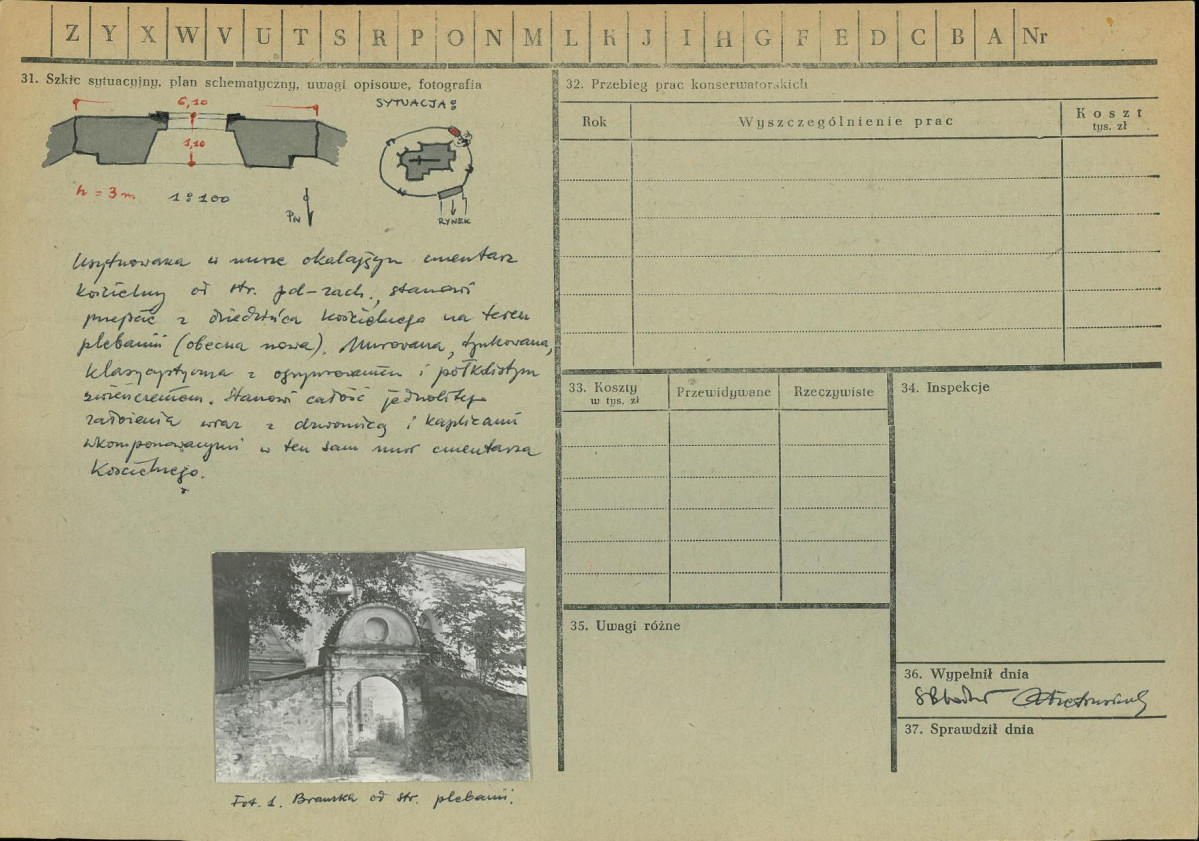 Z Y X W V U T S R P O N M L K J I H G F E D C B A Nr
31. Szkic sytuacyjny, plan schematyczny, uwagi opisowe, fotografia
6,10
1,10
h = 3 m
1:100
PN
SYTUACJA:
RYNEK
Usytuowana w murze okalającym cmentarz
kościelny od str. pd-zach., stanowi
przejście z dziedzińca kościelnego na teren
plebanii (obecna nowa). Murowana, tynkowana,
klasycystyczna z ogzymsowaniem i półkolistym
zwieńczeniem. Stanowi całość jednolitego
założenia wraz z dzwonnicą i kaplicami
wkomponowanymi w ten sam mur cmentarza
Kościelnego.
Fot. 1. Bramka od str. plebanii.
32. Przebieg prac konserwatorskich
Rok
Wyszczególnienie prac
Koszt
tys. zł
33. Koszty
w tys. zł
Przewidywane
Rzeczywiste
34. Inspekcje
35. Uwagi różne
36. Wypełnił dnia
37. Sprawdził dnia